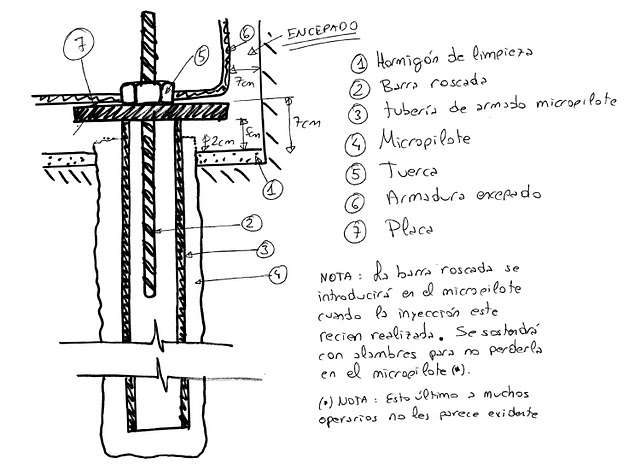 ENCEPADO
7
6
5
7cm
7cm
2cm
5cm
1
2
3
4
1 Hormigón de limpieza
2 Barra roscada
3 tubería de armado micropilote
4 Micropilote
5 Tuerca
6 Armadura encepado
7 Placa
NOTA: La barra roscada se
introducirá en el micropilote
cuando la inyección este
recien realizada. Se sostendrá
con alambres para no perderla
en el micropilote (*).
(*) NOTA: Esto último a muchos
operarios no les parece evidente